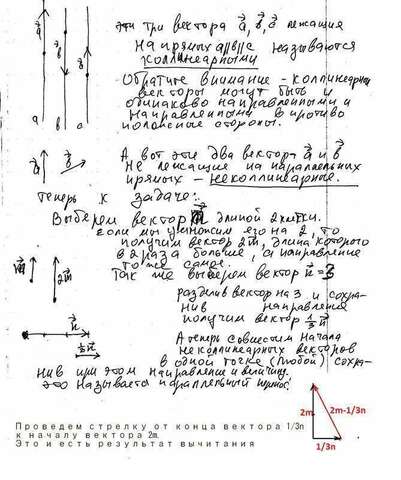 эти три вектора a, b, c лежащия
на прямых a||b||c называются
коллинеарными
Обратите внимание - коллинеарн
векторы могут быть и
одинаково направленными и
направленными в противо
положные стороны.
a b c
А вот эти два вектора a и b
не лежащие на параллельных
прямых - неколлинеарные.
теперь к задаче:
Выберем вектор m длиной 2 клетки.
если мы умножим его на 2, то
получим вектор 2m, длина которого
в 2 раза больше, а направление
то же самое.
m 2m
Так же выберем вектор n = 3
разделив вектор на 3 и сохра-
нив направления
получим вектор 1/3 n
n
1/3 n
А теперь совместим начала
неколлинеарных векторов
в одной точке (любой) сохра-
нив при этом направление и величину.
это называется параллельный перенос.
2m 2m-1/3n
1/3n
Проведем стрелку от конца вектора 1/3n
к началу вектора 2m.
Это и есть результат вычитания